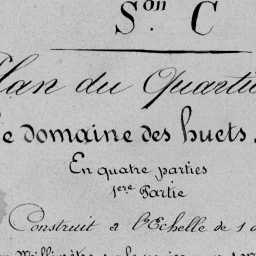 Son C
Plan du Quartie
e domaine des huets.
En quatre parties
1ere Partie
Construit a l'Echelle de 1 d
Millimètre